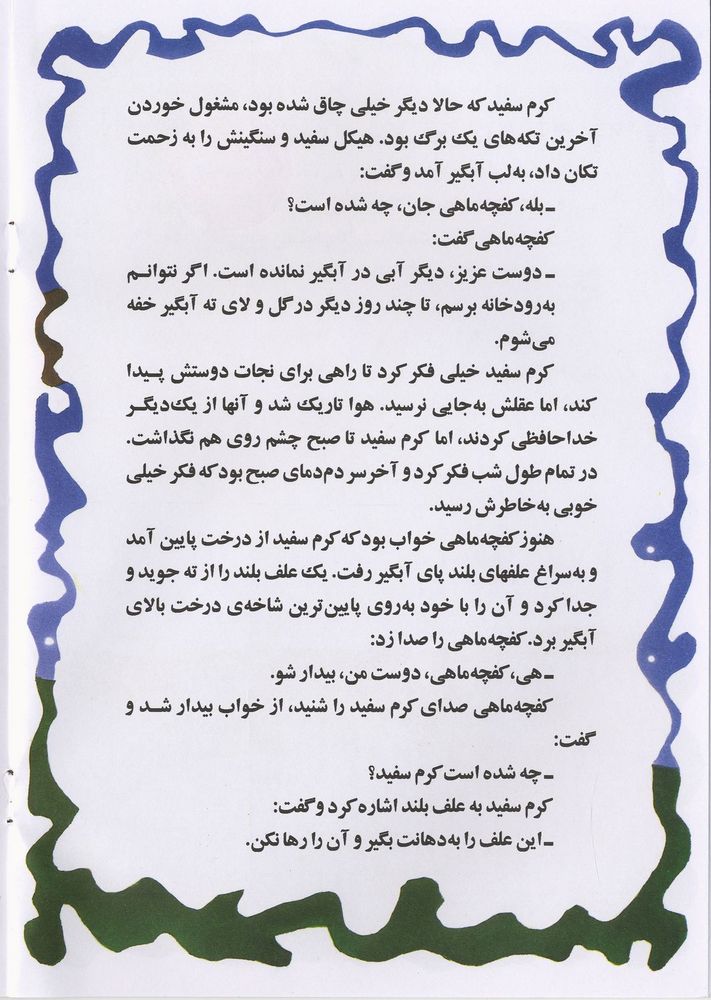 کرم سفید که حالا دیگر خیلی چاق شده بود، مشغول خوردن
آخرین تکه‌های یک برگ بود. هیکل سفید و سنگینش را به زحمت
تکان داد، به‌لب آبگیر آمد و گفت:
ـ بله، کفچه‌ماهی جان، چه شده است؟
کفچه‌ماهی گفت:
ـ دوست عزیز، دیگر آبی در آبگیر نمانده است. اگر نتوانـم
به‌رودخانه برسم، تا چند روز دیگر در گل و لای ته آبگیر خفه
می‌شوم.
کرم سفید خیلی فکر کرد تا راهی برای نجات دوستش پـیدا
کند، اما عقلش به‌جایی نرسید. هوا تاریک شد و آنها از یک‌دیگـر
خداحافظی کردند، اما کرم سفید تا صبح چشم روی هم نگذاشت.
در تمام طول شب فکر کرد و آخرسر دم‌دمای صبح بود که فکر خیلی
خوبی به‌خاطرش رسید.
هنوز کفچه‌ماهی خواب بود که کرم سفید از درخت پایین آمد
و به‌سراغ علفهای بلند پای آبگیر رفت. یک علف بلند را از ته جوید و
جدا کرد و آن را با خود به‌روی پایین‌ترین شاخه‌ی درخت بالای
آبگیر برد. کفچه‌ماهی را صدا زد:
ـ هی، کفچه‌ماهی، دوست من، بیدار شو.
کفچه‌ماهی صدای کرم سفید را شنید، از خواب بیدار شـد و
گفت:
ـ چه شده است کرم سفید؟
کرم سفید به علف بلند اشاره کرد و گفت:
ـ این علف را به‌دهانت بگیر و آن را رها نکن.